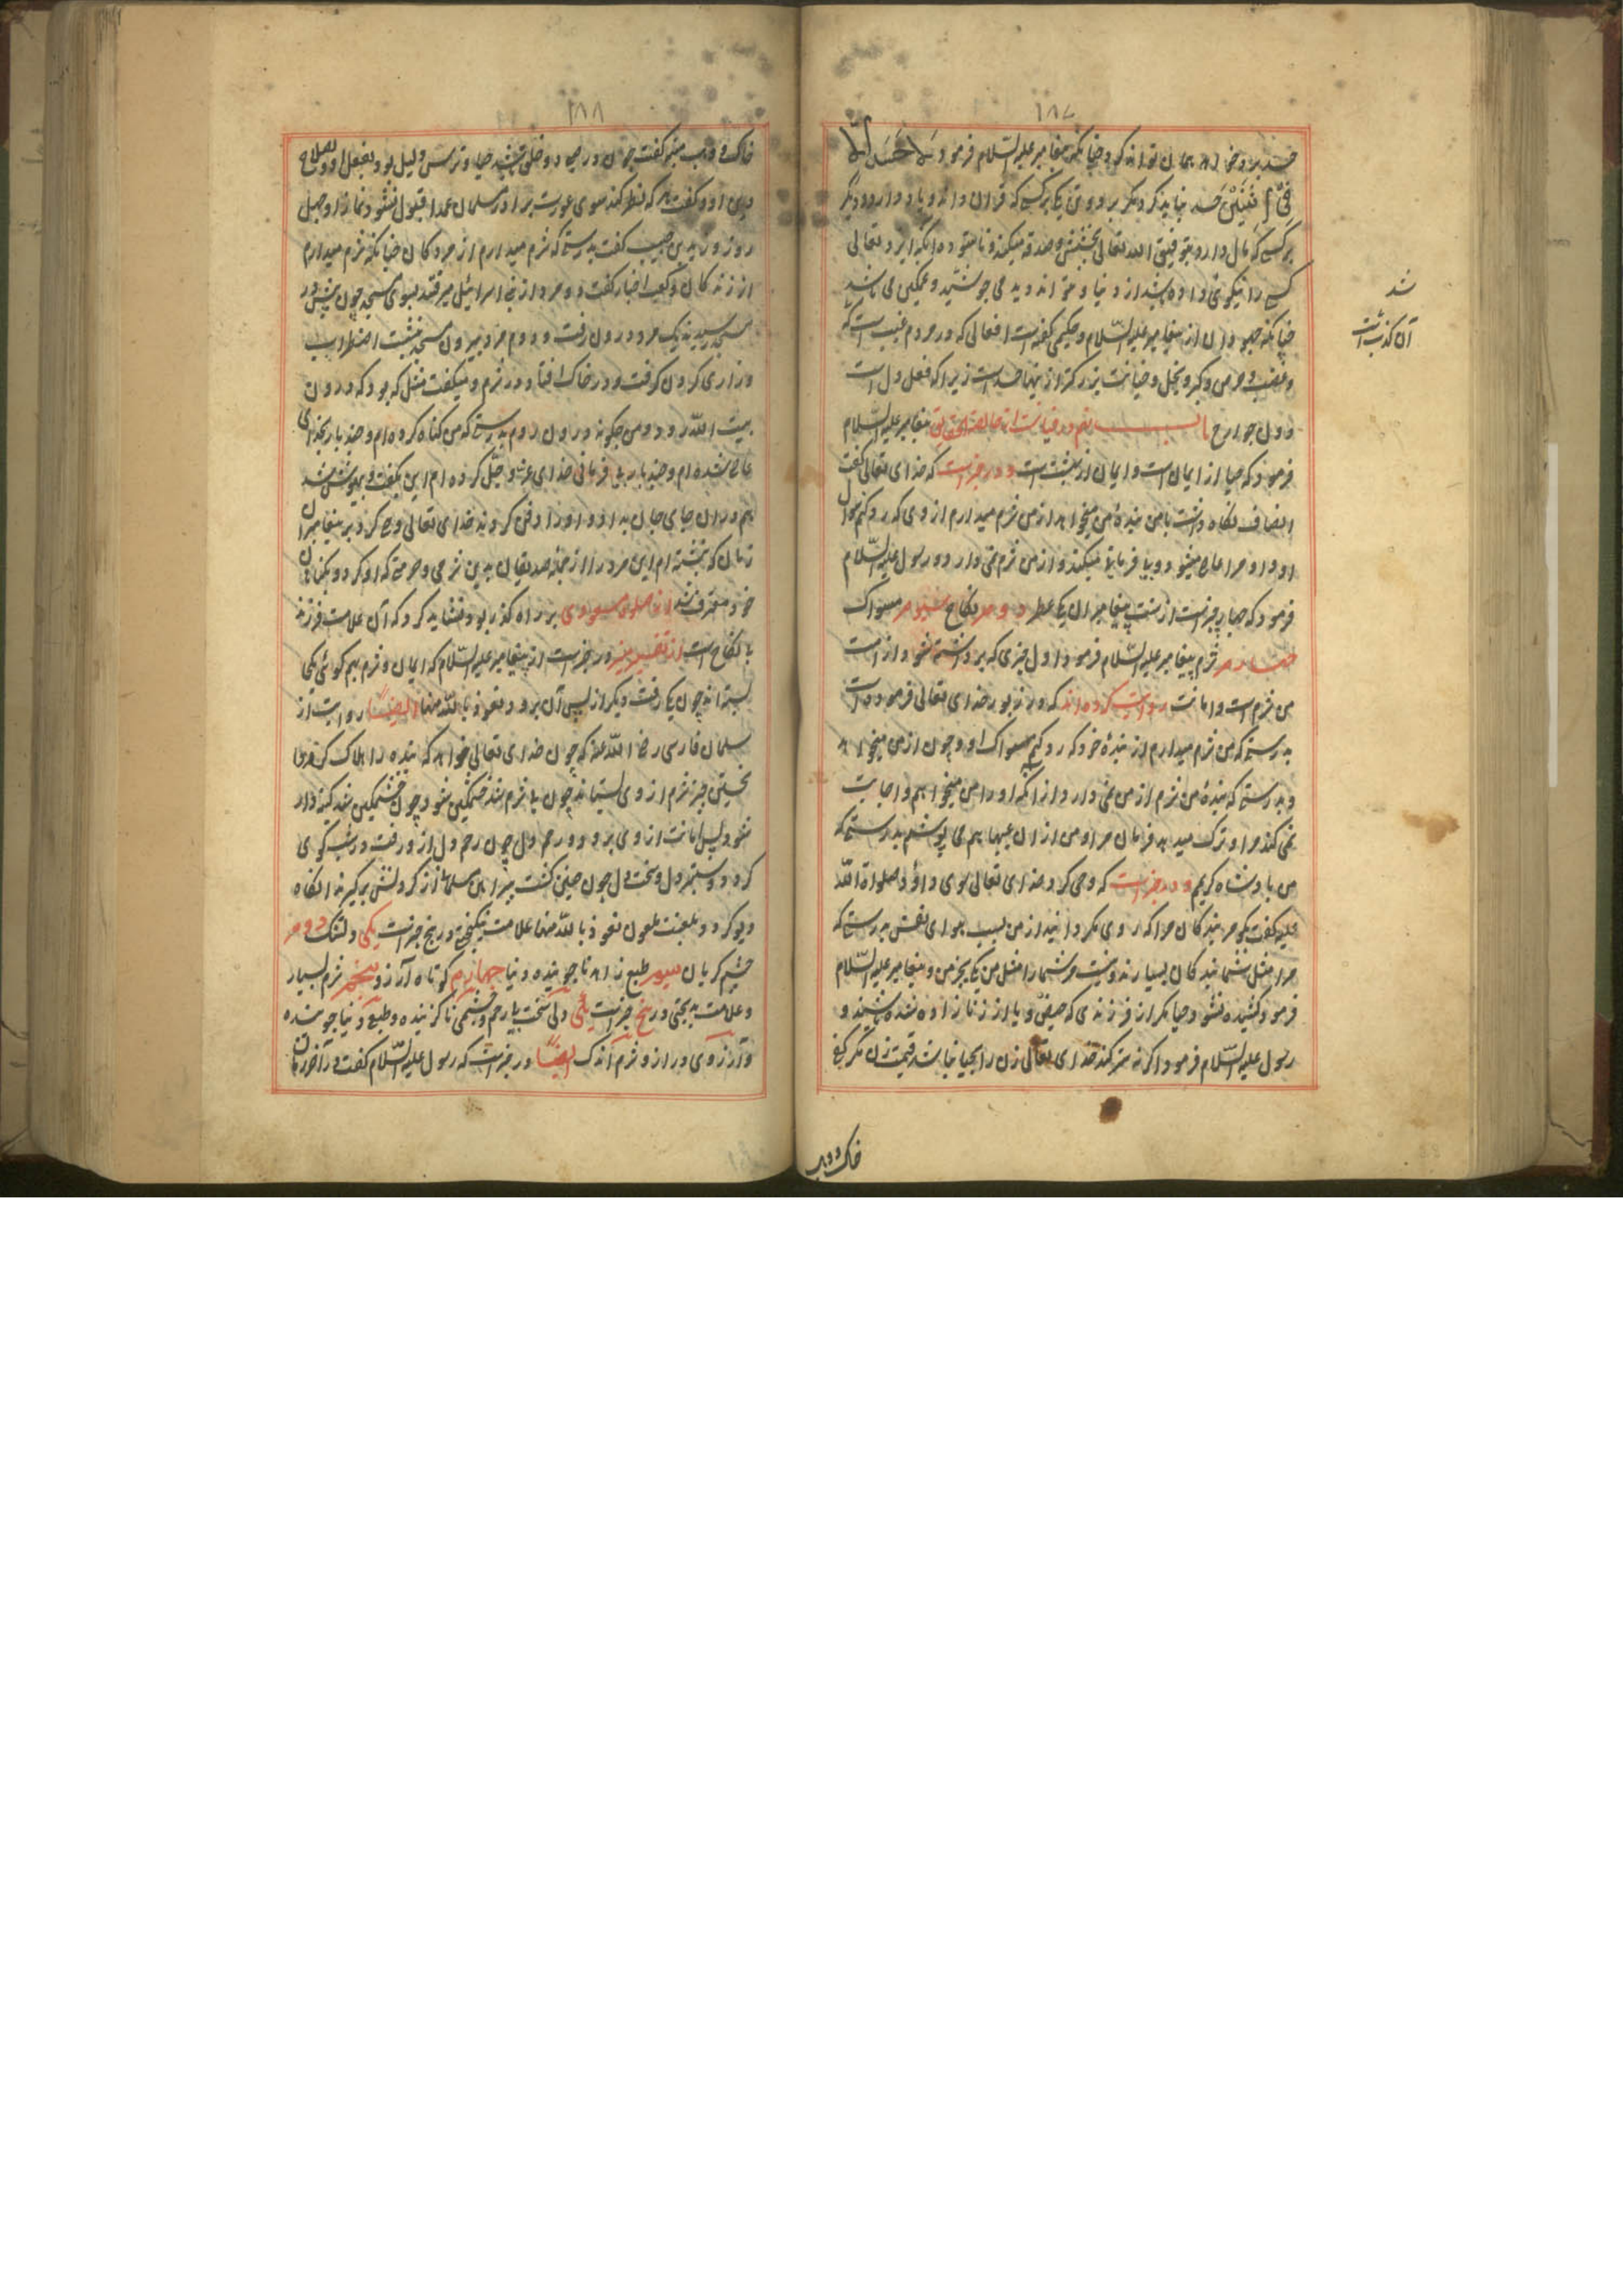 ١٨٧
حسد برد وخدا هم چنان تواند کرد چنانکه پیغامبر علیه السّلام فرمود لا حَسَدَ اِلّا
فِی اثنین حسد نباید کرد مگر بر دو تن یکی بر کسی که قرآن داند و یاد دارد و دیگر
بر کسی که مال دارد و بتوفیق الله تعالی بخشش و صدقه میکند و ایزد تعالی
کسی را نیکوی داده باشد از دنیا و نتواند دید می جوشد و غمگین می باشد
چنانکه جهودان از پیغامبر علیه السّلام و حکیمی گفته است افعالی که در مردم عیب است که
و غضب و حرص و کبر و بخل و خیانت بزرگتر از اینها حسد است زیرا که فعل دل است
و دل جوارح باب پیغامبر علیه السّلام
فرمود که حیا از ایمان است و ایمان از بهشت است و در خبر است که خدای تعالی گفت
انصاف نگاه داشت با من بندهٔ من میخواهد از من شرم میدارم از وی که رد کنم سوال
او و او مرا عاصی میشود و بیفرمانی میکند و از من شرم نمی دارد و رسول علیه السّلام
فرمود که چهار چیز است از سنت پیغامبران یکی عطر دوم نکاح سیوم مسواک
چهارم شرم پیغامبر علیه السّلام فرمود اول چیزی که برداشته شود از امت
من شرم است و امانت روایت کرده اند که در زبور خدای تعالی فرموده است
بدرستی که من شرم میدارم از بندهٔ خود که رد کنم سوال او و چون از من میخواهد
و بدرستی که بندهٔ من شرم از من نمی دارد از آنکه او را من میخواهم و اجابت
نمی کند مرا و ترک میدهد فرمان مرا و من از آن عیبها هم می پوشم بدرستی که
من پادشاه کریم و در خبر است که وحی کرد خدای تعالی سوی داؤد صلواة الله
علیه گفت بگو مر بندگان مرا که روی مگردانید از من بسبب هوای نفس بدرستی که
مرا مثل شما بندگان بسیارند و نیست مر شما را مثل من یکی بجز من و پیغامبر علیه السّلام
فرمود کشیده نشود حیا مگر از فرزندی که حیض و یا از زنا زاده شده باشند و
رسول علیه السّلام فرمود اگر نه ستر کند خدای تعالی زن را بحیا نباشد قیمت زن مگر کف
خاک و وهب
شد
آن کذب است
١٨٨
خاک و وهب منبه گفت چون در میان دو خلق باشد حیا و ترس دلیل بود بفعل او و صلاح
دین او و گفت هر که نظر کند سوی عورت برادر مسلمان عمدا قبول نشود نماز او چهل
روز و زید بن حبیب گفت بدرستی که شرم میدارم از مردگان چنانکه شرم میدارم
از زندگان و کعب اخبار گفت دو مرد از بنی اسرائیل میرفتند بسوی مسجد چون پیش در
مسجد رسیدند یک مرد درون رفت و دوم مرد بیرون مسجد بنشست اضطراب
و زاری کردن گرفت و در خاک افتاد و در شرم و میگفت مثل که بود که درون
بیت الله رود و من چگونه درون روم بدرستی که من گناه کرده ام و چند بار بخدای
عاصی شده ام و چند بار بی فرمانی خدای عزّ و جلّ کرده ام این بگفت و بیهوش شد
هم در آن جای جان بداد و او را دفن کردند خدای تعالی وحی کرد بر پیغامبر آن
زمان که نبشته ام این مرد را از جملهٔ صدیقان بدین شرمی و حرمتی که او کرد و بگناهان
خود معترف شد از صلوة مسعودی بر راه گذر بول نشاید کرد که آن علامت فرزند
نا نکاح است از تفسیر در خبر است از پیغامبر علیه السّلام که ایمان و شرم هم گوئی یکی
بسته اند چون یکی رفت دیگر از پس آن برود نعوذ بالله منها ایضاً روایت از
سلمان فارسی رضی الله عنه که چون خدای تعالی خواهد که بنده را هلاک کند
نخستین چیز شرم از وی بستاند چون بی شرم شد خشمگین شود چون خشمگین شد کینه دار
شود پس امانت از وی برد و رحم دل چون رحم دل از و رفت درشت گوی
گردد و ستبر دل و سخت دل چون چنین گشت پیراهن مسلمانی از گردنش برگیرند آنگاه
دیو گردد بلعنت ملعون نعوذ بالله منها علامت نیکبختی در پنج چیز است یکی دل تنک دوم
چشم گریان سیوم طبع زاهد ناجوینده دنیا چهارم کوتاه آرزو پنجم شرم بسیار
و علامت بدبختی در پنج چیز است یکی دلی سخت بی رحم و چشمی ناگرینده و طبع دنیا جوینده
و آرزوی دراز و شرم اندک ایضاً در خبر است که رسول علیه السّلام گفت در آخر زمان